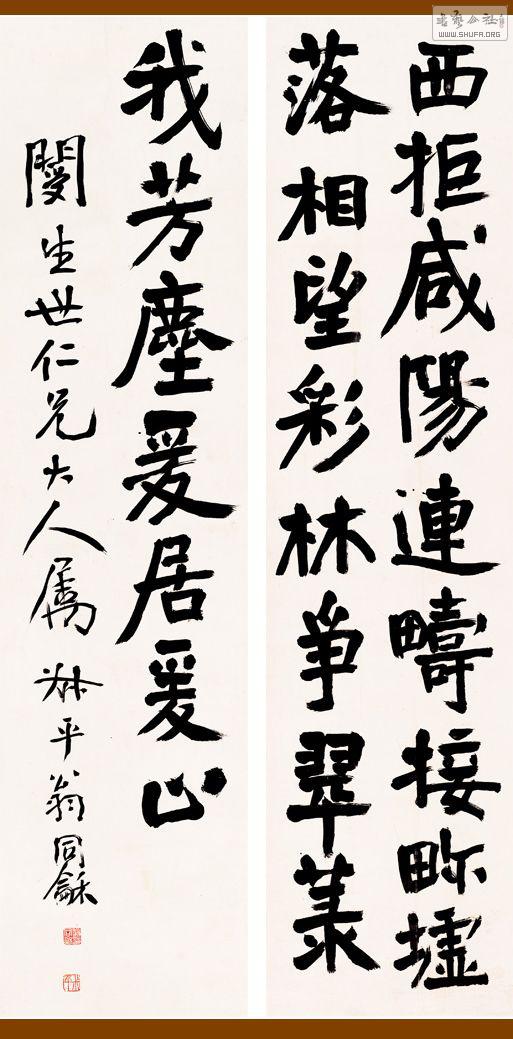 書藝公社
WWW.SHUFA.ORG
西拒咸陽連疇接畛墟
落相望彩林爭翠羕
我芳塵爰居爰止
閿生世仁兄大人屬 叔平翁同龢